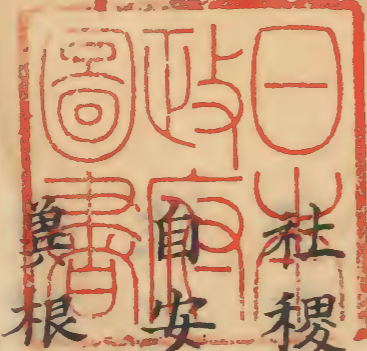 日本
政府
圖書
社稷
自安
異根